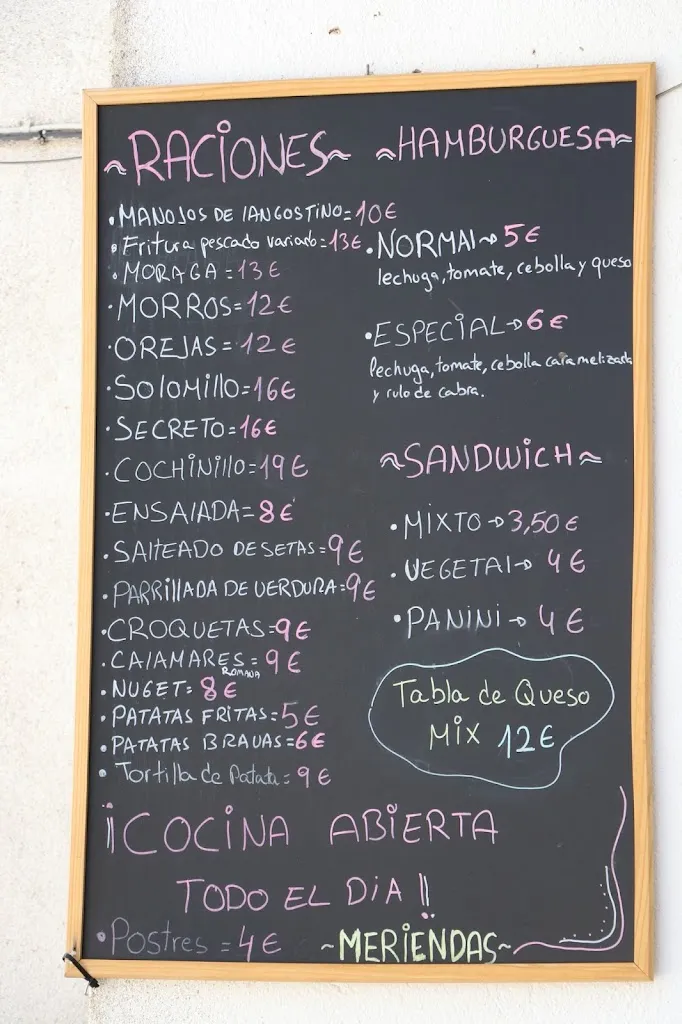 ~RACIONES~
• MANOJOS DE LANGOSTINO = 10€
• Fritura pescado variado = 13€
• MORAGA = 13€
• MORROS = 12€
• OREJAS = 12€
• SOLOMILLO = 16€
• SECRETO = 16€
• COCHINILLO = 19€
• ENSALADA = 8€
• SALTEADO DE SETAS = 9€
• PARRILLADA DE VERDURA = 9€
• CROQUETAS = 9€
• CALAMARES = 9€
ROMANA
• NUGET = 8€
• PATATAS FRITAS = 5€
• PATATAS BRAVAS = 6€
• Tortilla de Patata = 9€
~HAMBURGUESA~
• NORMAL → 5€
lechuga, tomate, cebolla y queso
• ESPECIAL → 6€
lechuga, tomate, cebolla caramelizada
y rulo de cabra.
~SANDWICH~
• MIXTO → 3,50€
• VEGETAL → 4€
• PANINI → 4€
Tabla de Queso
MIX 12€
¡COCINA ABIERTA
TODO EL DIA!!
• Postres = 4€
~MERIENDAS~